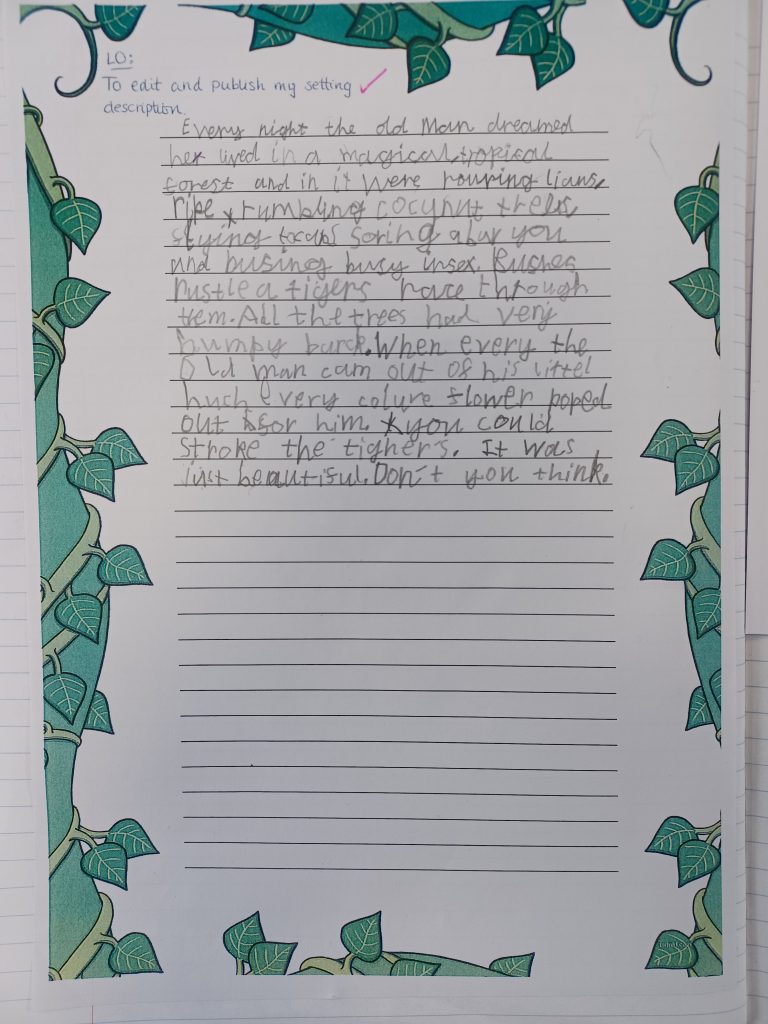 LO:
To edit and publish my setting
description.
Every night the old Man dreamed
he lived in a magical, tropical
forest and in it were rouring lians,
ripe rumbling cocynut trees,
flying soring abuv you
and busing busy insex. Bushes
rustle a tigers race through
tem. All the trees had very
bumpy barck. When every the
Old man cam out of his littel
huch every colure flower poped
out for him. you could
stroke the tighers. It was
just beautiful. Don't you think.